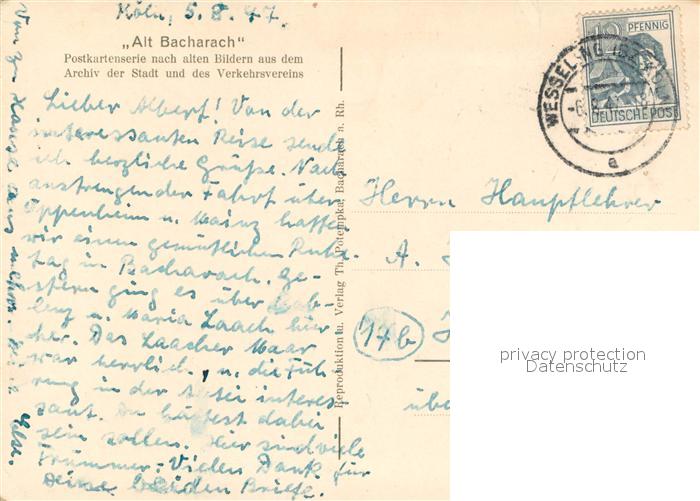 Köln, 5.8.47.
„Alt Bacharach"
Postkartenserie nach alten Bildern aus dem
Archiv der Stadt und des Verkehrsvereins
Lieber Albert! Von der
interessanten Reise sende
ich herzliche Grüße. Nach
anstrengender Fahrt über
Oppenheim u. Mainz hatten
wir einen gemütlichen Ruhe-
tag in Bacharach. Ge-
stern ging es über Kob-
lenz u. Maria Laach hier
her. Das Laacher Maar
war herrlich, u. die Füh-
rung in der Abtei interes-
sant. Du hättest dabei
sein sollen. Hier sind viele
Trümmer. Vielen Dank für
Deine beiden Briefe.
Von zu Hause mehr.
Else.
Reproduktion u. Verlag Th. Potempka, Bacharach a. Rh.
12 PFENNIG
DEUTSCHE POST
WESSELING
a
Herrn Hauptlehrer
A.
17b
privacy protection
Datenschutz